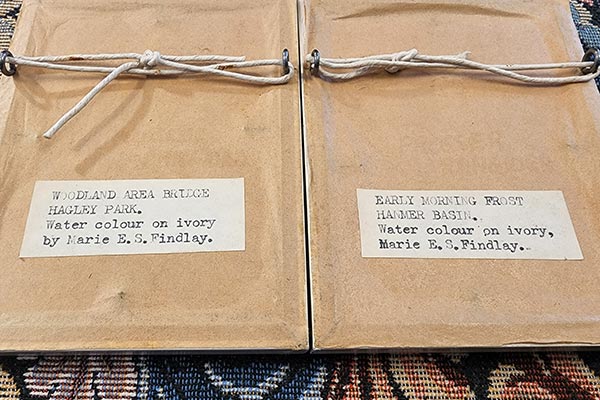 WOODLAND AREA BRIDGE
HAGLEY PARK.
Water colour on ivory
by Marie E.S.Findlay.
EARLY MORNING FROST
HANMER BASIN.
Water colour on ivory,
Marie E.S.Findlay.